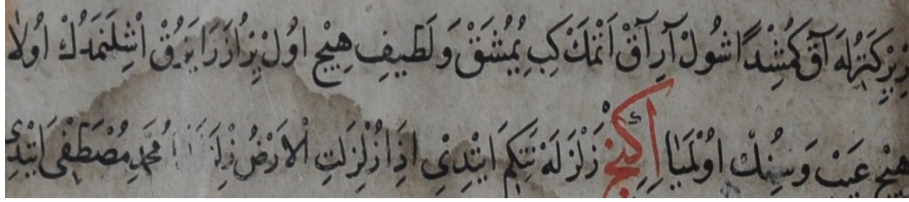 آق كمشدا شول آرآق اتمك كب يمشق و لطيف هيچ اول ير ازرا يزق اشلنمدك اولا
هيچ عيب و سنك اولميا اكنچ زلزله تتكم ايتدى اذا زلزلت الارض محمد مصطفى ايتدى